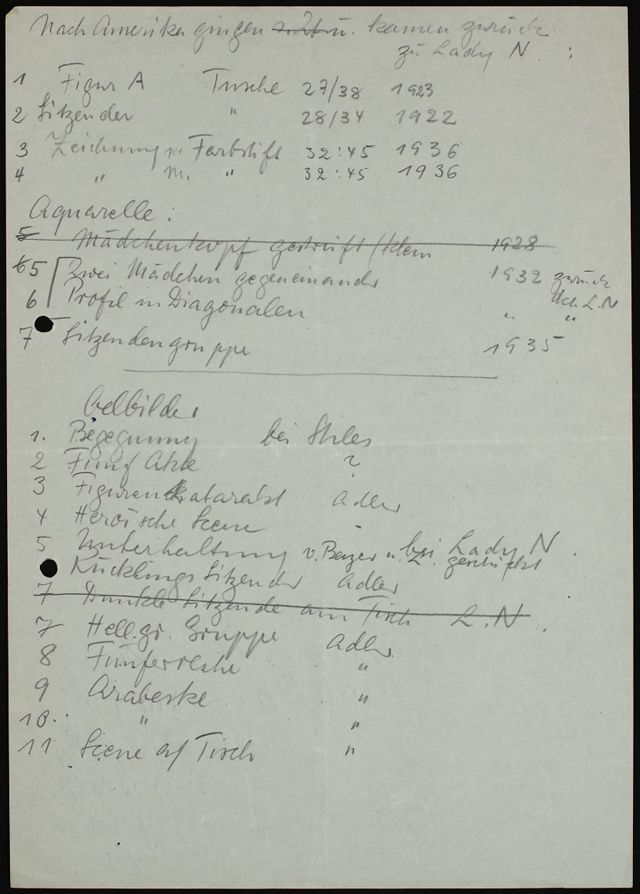 Nach Amerika gingen u. kamen zurück
zu Lady N :
1 Figur A Tusche 27/38 1923
2 Sitzender " 28/34 1922
3 Zeichnung m Farbstift 32:45 1936
4 " m. " 32:45 1936
Aquarelle:
5 Mädchenkopf gestreift/klein 1928
6 5 Zwei Mädchen gegeneinander 1932 zurück
6 Profil in Diagonalen " L.N "
7 Sitzendengruppe 1935
Oelbilder
1. Begegnung bei Stiles
2 Fünf Akte ?
3 Figurenkatarakt Adler
4 Heroische Scene
5 Unterhaltung v. Beyer u. bei Lady N.
geschickt
Rücklings Sitzender Adler
7 Dunkle Sitzende am Tisch L.N.
7 Hell.gr. Gruppe Adler
8 Fünferreihe "
9 Arabeske "
10. " "
11 Scene auf Tisch "